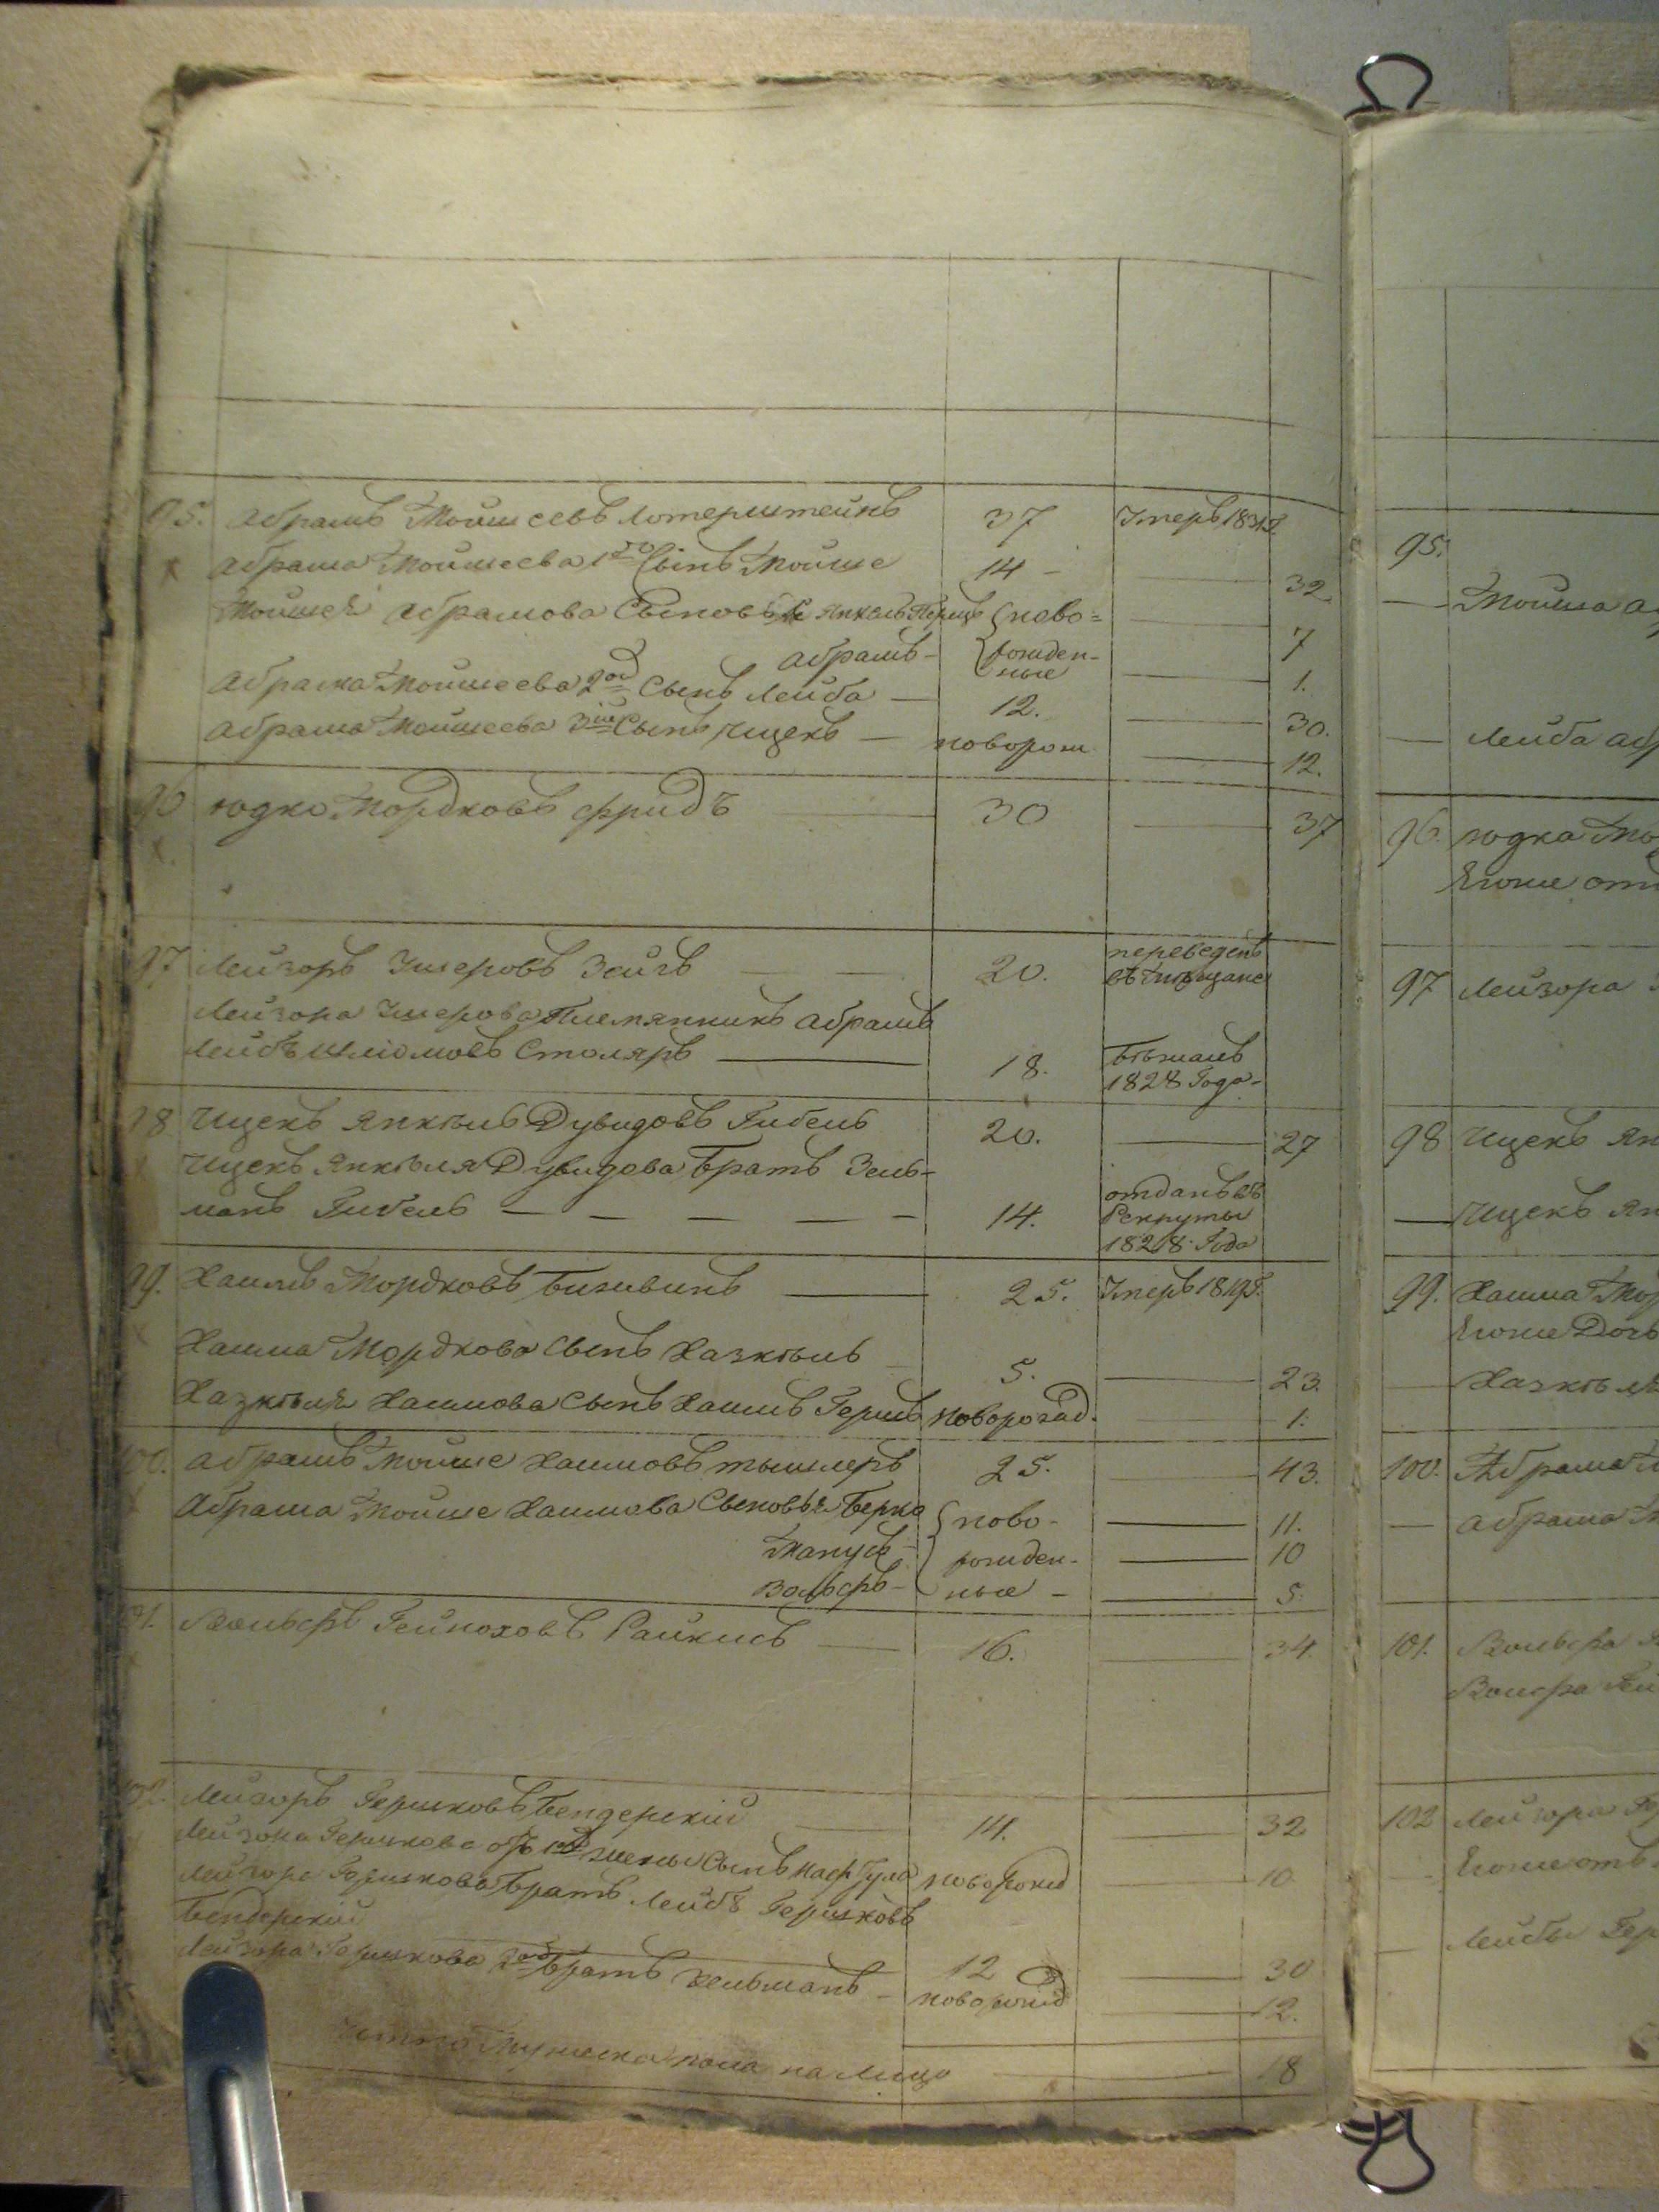 95. Абрамъ Мойшсевъ Лотерштейнъ 37 Умеръ 1831г.
Абрама Мойшеева 1го Сынъ Мойше 14 — 32.
Мойшея Абрамова Сыновья Янкель Перецъ ново= 7
Абрамъ — рожден-ные 1.
Абрама Мойшеева 2ой Сынъ Лейба — 12. 30.
Абрама Мойшеева 3ій Сынъ Ицекъ — поворож 12.
96 Юдко Мордковъ Фридъ 30 37
97 Лейзоръ Умеровъ Зейгъ 20. переведенъ въ
Лейзора Умерова Племянникъ Абрамъ
Лейбъ Шліомовъ Столяръ 18. Бѣжалъ 1828 Года -
98 Ицекъ Янкѣль Дувидовъ Гибель 20. 27
Ицекъ Янкѣля Дувидова Братъ Зель-
манъ Гибель — — — — — 14. отданъ въ Рекруты 1828 Года
99. Хаимъ Мордковъ 25. Умеръ 1819г.
Хаима Мордкова Сынъ Хазкѣль 5. 23.
Хазкѣля Хаимова Сынъ Хаимъ Гершъ поворожд. 1.
100. Абрамъ Мойше Хаимовъ тышлеръ 25. 43.
Абрама Мойше Хаимова Сыновья Берко ново- 11.
Манусъ — рожден- 10
Вольфъ — ные — 5.
101. Вольфъ Гейноховъ Райхисъ 16. 34
102. Лейзоръ Гершковъ Бендерскій 14. 32
Лейзора Гершкова отъ 1ой жены Сынъ новорожд 10
Лейзора Гершкова Братъ Лейбъ Гершковъ
Бендерскій 12 30
Лейзора Гершкова 2ой Братъ Зельманъ — новорожд 12.
Итого Мужеска пола на лицо 18
95.
— Мойша
— Лейба
96. Юдка
Егоже
97 Лейзора
98 Ицекъ
— Ицекъ
99. Хаима
Егоже Дочь
Хазкѣля
100. Абрама
— Абрама
101. Вольфа
Вольфа
102 Лейзора
Егоже отъ
— Лейбы